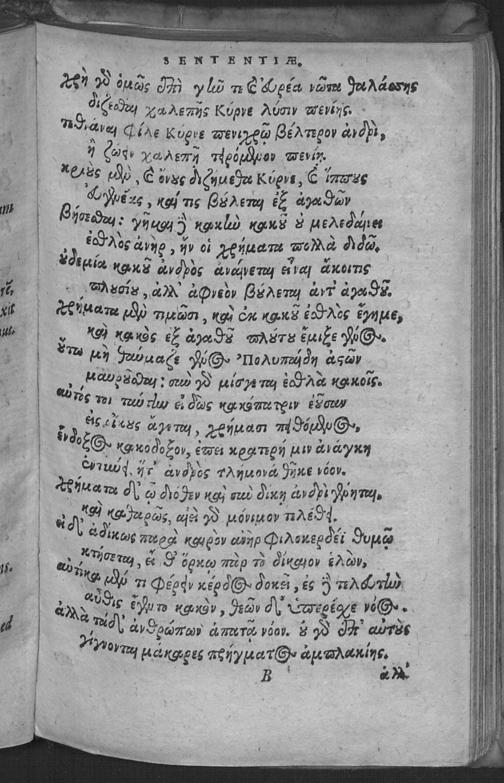 SENTENTIÆ.
χρὴ γὸ ὁμῶς ἐπὶ γῆν τε καὶ εὐρέα νῶτα θαλάσσης
δίζεσθαι χαλεπῆς Κύρνε λύσιν πενίης.
τεθνάναι φίλε Κύρνε πενιχρῷ βέλτερον ἀνδρὶ,
ἢ ζώειν χαλεπῇ τειρόμενον πενίῃ.
κριοὺς μὲν, καὶ ὄνους διζήμεθα Κύρνε, καὶ ἵππους
εὐγενέας, καί τις βούλεται ἐξ ἀγαθῶν
βήσεσθαι: γῆμαι δὲ κακὴν κακοῦ οὐ μελεδαίνει
ἐσθλὸς ἀνὴρ, ἤν οἱ χρήματα πολλὰ διδῶ.
οὐδεμία κακοῦ ἀνδρὸς ἀναίνεται εἶναι ἄκοιτις
πλουσίου, ἀλλ' ἀφνεὸν βούλεται ἀντ' ἀγαθοῦ.
χρήματα μὲν τιμῶσι, καὶ ἐκ κακοῦ ἐσθλὸς ἔγημε,
καὶ κακὸς ἐξ ἀγαθοῦ πλοῦτος ἔμιξε γένος.
οὕτω μὴ θαύμαζε γένος Πολυπαίδη ἀστῶν
μαυροῦσθαι: σὺν γὰρ μίσγεται ἐσθλὰ κακοῖς.
αὐτός τοι ταύτην εἰδὼς κακόπατριν ἐοῦσαν
εἰς οἴκους ἄγεται, χρήμασι πειθόμενος,
ἔνδοξος κακόδοξον, ἐπεὶ κρατερή μιν ἀνάγκη
ἐντύνει, ἥτ' ἀνδρὸς τλήμονα θῆκε νόον.
χρήματα δ' ᾧ διόθεν καὶ σὺν δίκῃ ἀνδρὶ γένηται,
καὶ καθαρῶς, αἰεὶ γὰρ μόνιμον τελέθει.
εἰ δ' ἀδίκως παρὰ καιρὸν ἀνὴρ φιλοκερδέϊ θυμῷ
κτήσεται, εἴ θ' ὅρκῳ πὰρ τὸ δίκαιον ἑλὼν,
αὐτίκα μέν τι φέρειν κέρδος δοκεῖ, ἐς δὲ τελευτὴν
αὖθις ἔγεντο κακὸν, θεῶν δ' ὑπερέσχε νόος.
ἀλλὰ τάδ' ἀνθρώπων ἀπατᾷ νόον. οὐ γὰρ ἐπ' αὐτοὺς
γίγνονται μάκαρες πρήγματος ἀμπλακίης.
B
ἀλλ'